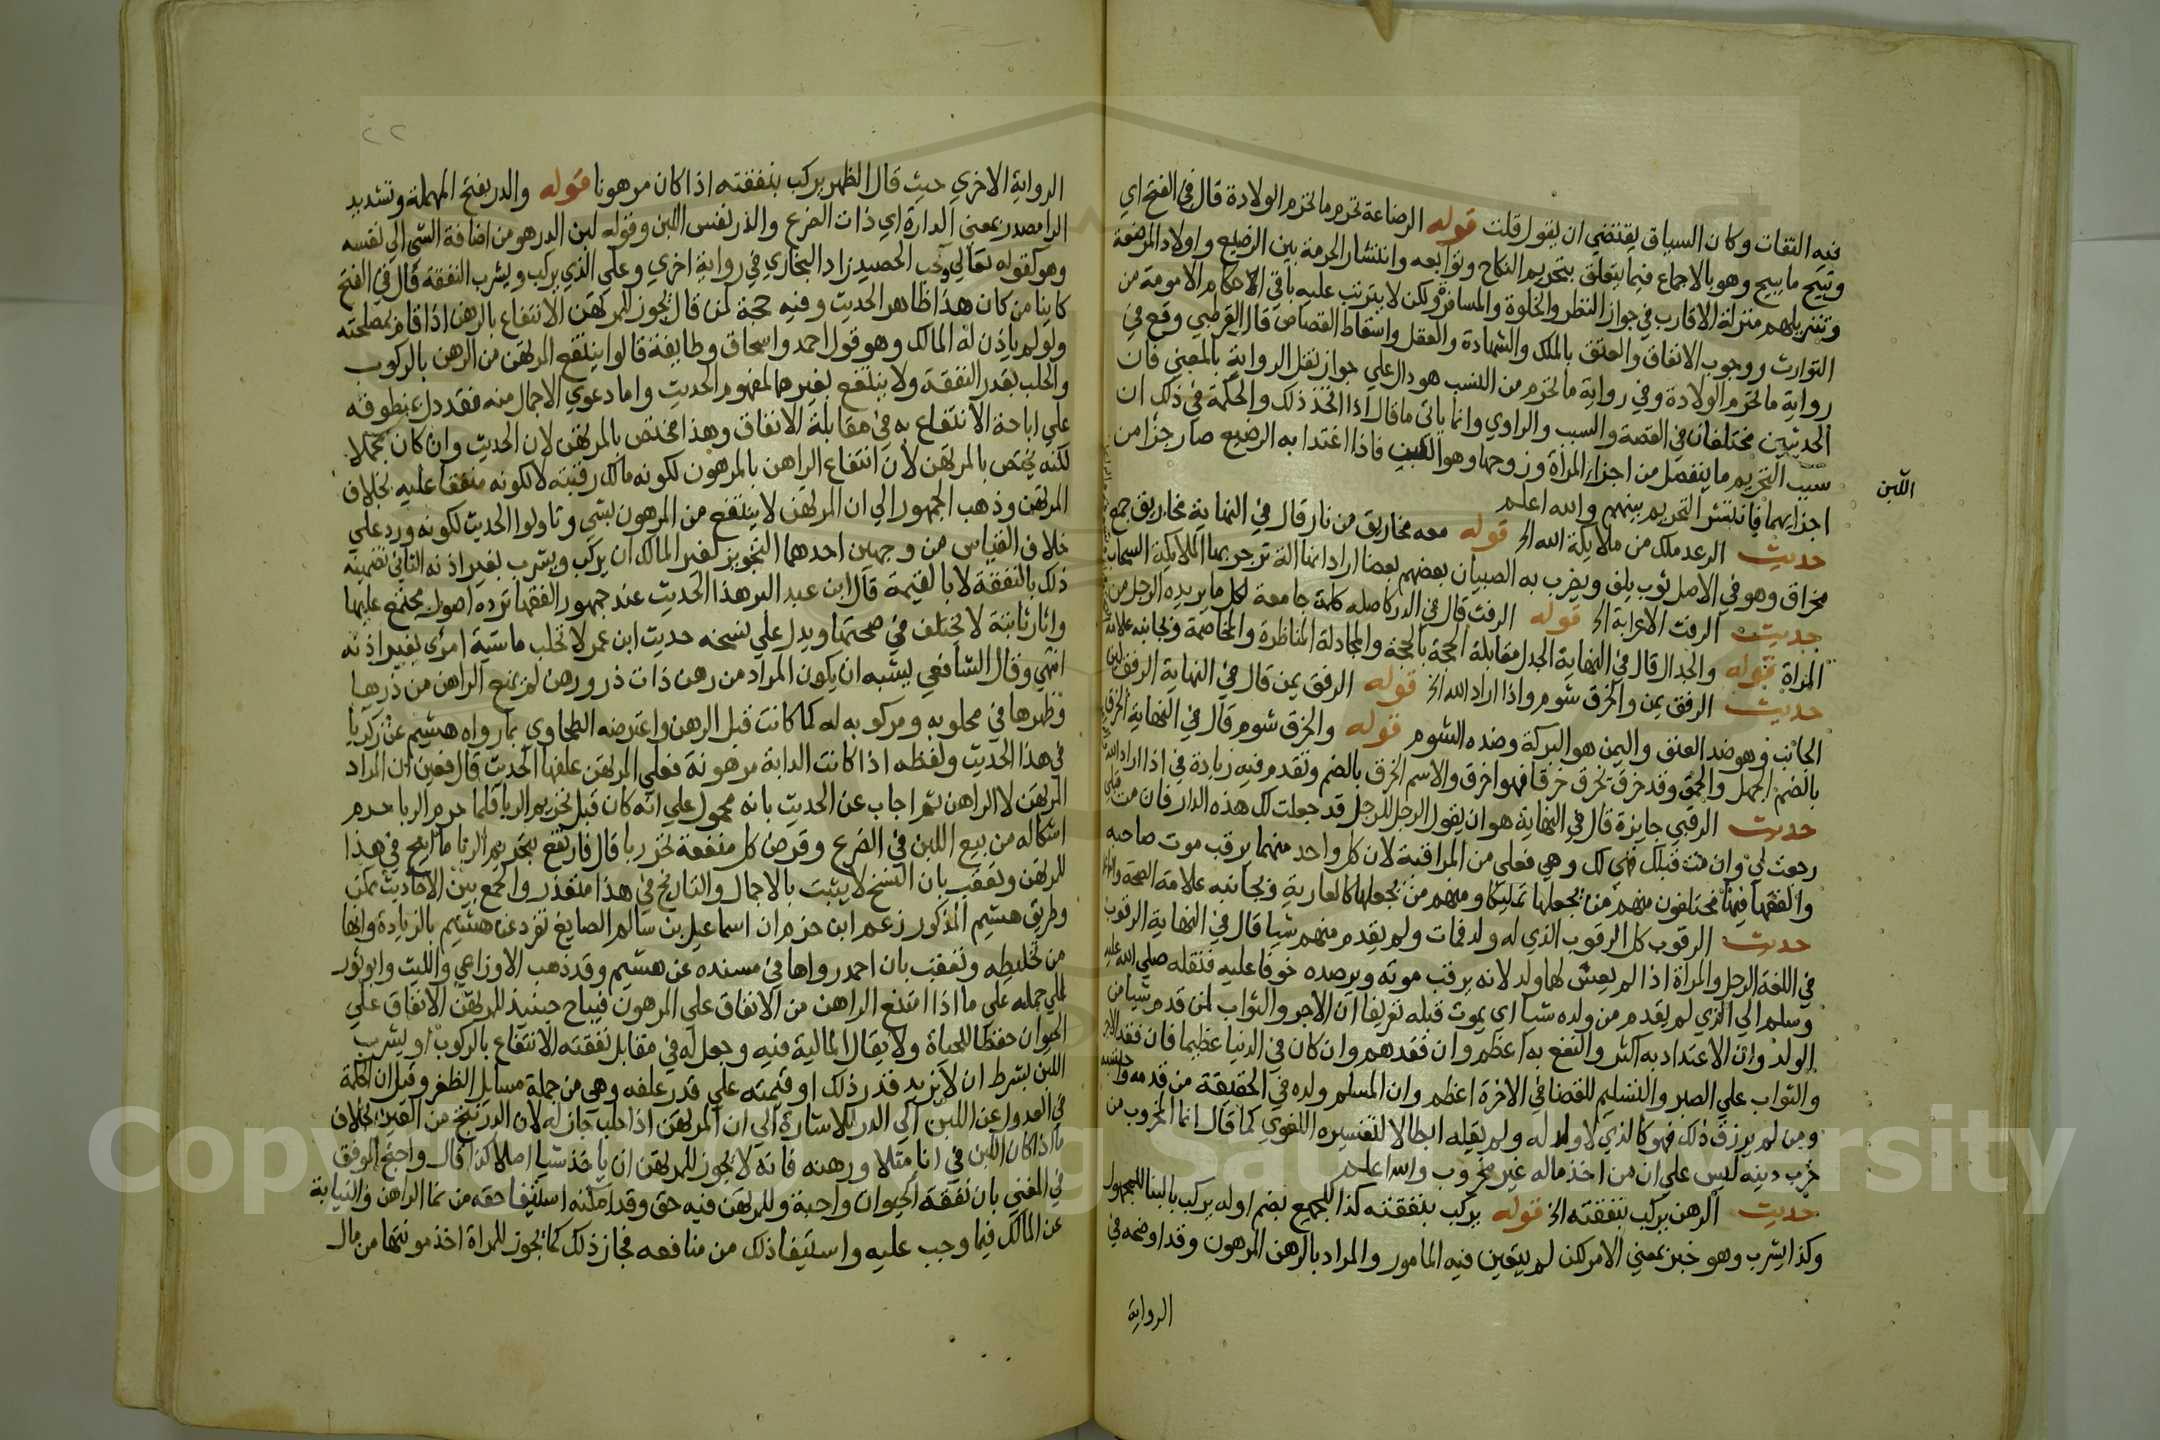 فيه الثقات وكان السياق يقتضي ان يقول قلت قوله الرضاعة تحرم ما تحرم الولادة قال في الفتح اي
وتبيح ما يبيح وهو بالاجماع فيما يتعلق بتحريم النكاح وتوابعه وانتشار الحرمة بين الرضيع واولاد المرضعة
وتنزيلهم منزلة الاقارب في جواز النظر والخلوة والمسافرة ولكن لا يترتب عليه باقي الاحكام الامومة من
التوارث ووجوب الانفاق والعتق بالملك والشهادة والعقل واسقاط القصاص قال القرطبي وقع في
رواية ما تحرم الولادة وفي رواية ما تحرم من النسب هو دال علي جواز نقل الرواية بالمعني فان
الحديثين مختلفان في القصة والسبب والراوي وانما ياتي ما قال اذا اتخذ ذلك والحكمة في ذلك ان
سبب التحريم ما ينفصل من اجزاء المرأة وزوجها وهو اللبن فاذا اغتذا به الرضيع صار جزأ من
اللبن
اجزايهما فانتشر التحريم بينهم والله اعلم
حديث الرعد ملك من ملايكة الله الخ قوله معه مخاريق من نار قال في النهاية مخاريق جمع
مخراق وهو في الاصل ثوب يلف ويضرب به الصبيان بعضهم بعضا اراد انها الة تزجر بها الملايكة السحاب
حديث الرفث الاعرابة الخ قوله الرفث قال في الدر كاصله كلمة جامعة لكل ما يريده الرجل من
المرأة قوله والجدال قال في النهاية الجدل مقابلة الحجة بالحجة والمجادلة المناظرة والمخاصمة وبجانبه علامة
حديث الرفق يمن والخرق شوم واذا اراد الله الخ قوله الرفق يمن قال في النهاية الرفق لين
الجانب وهو ضد العنف واليمن هو البركة وضده الشوم قوله والخرق شوم قال في النهاية الخرق
بالضم الجهل والحمق وقد خرق يخرق خرقا فهو اخرق والاسم الخرق بالضم وتقدم فيه زيادة في اذا اراد الله
حديث الرقبي جايزة قال في النهاية هو ان يقول الرجل للرجل قد جعلت لك هذه الدار فان مت قبلي
رجعت لي وان مت قبلك فهي لك وهي فعلي من المراقبة لان كل واحد منهما يرقب موت صاحبه
والفقها فيها مختلفون منهم من يجعلها تمليكا ومنهم من يجعلها كالعارية وبجانبه علامة الصحة
حديث الرقوب كل الرقوب الذي له ولد فمات ولم يقدم منهم شيا قال في النهاية الرقوب
في اللغة الرجل والمرأة اذا لم يعش لهما ولد لانه يرقب موته ويرصده خوفا عليه فنقله صلي الله عليه
وسلم الي الذي لم يقدم من ولده شيا اي يموت قبله تعريفا ان الاجر والثواب لمن قدم شيا من
الولد وان الاعتداد به اكثر والنفع به اعظم وان فقدهم وان كان في الدنيا عظيما فان فقد الاجر
والثواب علي الصبر والتسليم للقضا في الاخرة اعظم وان المسلم ولده في الحقيقة من قدمه واحتسبه
ومن لم يرزق ذلك فهو كالذي لا ولد له ولم يقله ابطالا لتفسيره اللغوي كما قال انما المحروب من
حرب دينه ليس علي ان من اخذ ماله غير محروب والله اعلم
حديث الرهن يركب بنفقته الخ قوله يركب بنفقته كذا للجميع بضم اوله يركب بالبنا للمجهول
وكذا يشرب وهو خبر بمعني الامر لكن لم يتعين فيه المامور والمراد بالرهن المرهون وقد اوضحه في
الرواية
الرواية الاخري حيث قال الظهر يركب بنفقته اذا كان مرهونا قوله والدر بفتح المهملة وتشديد
الرا مصدر بمعني الدارة اي ذات الضرع والدر نفس اللبن وقوله لبن الدر هو من اضافة الشي الي نفسه
وهو كقوله تعالي وحب الحصيد زاد البخاري في رواية اخري وعلي الذي يركب ويشرب النفقة قال في الفتح
كاينا من كان هذا ظاهر الحديث وفيه حجة لمن قال يجوز للمرتهن الانتفاع بالرهن اذا قام بمصلحته
ولو لم ياذن له المالك وهو قول احمد واسحاق وطايفة قالوا ينتفع المرتهن من الرهن بالركوب
والحلب بقدر النفقة ولا ينتفع بغيرهما لمفهوم الحديث واما دعوي الاجمال منه فقد دل بمنطوقه
علي اباحة الانتفاع به في مقابلة الانفاق وهذا مختص بالمرتهن لان الحديث وان كان مجملا
لكنه يختص بالمرتهن لان انتفاع الراهن بالمرهون لكونه مالك رقبته لا لكونه منفقا عليه بخلاف
المرتهن وذهب الجمهور الي ان المرتهن لا ينتفع من المرهون بشي وتاولوا الحديث لكونه ورد علي
خلاف القياس من وجهين احدهما التجويز لغير المالك ان يركب ويشرب بغير اذنه الثاني تضمينه
ذلك بالنفقة لا بالقيمة قال ابن عبد البر هذا الحديث عند جمهور الفقها ترده اصول مجتمع عليها
واثار ثابتة لا يختلف في صحتها ويدل علي نسخه حديث ابن عمر لا تحلب ماشية امرئ بغير اذنه
انتهي وقال الشافعي يشبه ان يكون المراد من رهن ذات در وظهر لم يمنع الراهن من درها
وظهرها في محلوبه ومركوبه له كما كانت قبل الرهن واعترضه الطحاوي بما رواه هشيم عن زكريا
في هذا الحديث ولفظه اذا كانت الدابة مرهونة فعلي المرتهن علفها الحديث قال فعين ان المراد
المرتهن لا الراهن ثم اجاب عن الحديث بانه محمول علي انه كان قبل تحريم الربا فلما حرم الربا حرم
اشكاله من بيع اللبن في الضرع وقرض كل منفعة تجر ربا قال فارتفع بتحريم الربا ما ابيح في هذا
للمرتهن وتعقب بان النسخ لا يثبت بالاجمال والتاريخ في هذا متعذر والجمع بين الاحاديث ممكن
وطريق هشيم المذكور زعم ابن حزم ان اسماعيل بن سالم الصايغ تفرد عن هشيم بالزيادة وانها
من تخليطه وتعقب بان احمد رواها في مسنده عن هشيم وقد ذهب الاوزاعي والليث وابو ثور
الي حمله علي ما اذا امتنع الراهن من الانفاق علي المرهون فيباح حينيذ للمرتهن الانفاق علي
الحيوان حفظا للحياة ولا يقال المالية فيه وجعل له في مقابل نفقته الانتفاع بالركوب او يشرب
اللبن بشرط ان لا يزيد قدر ذلك او قيمته علي قدر علفه وهي من جملة مسايل الظفر وقيل ان الحكمة
في العدول عن اللبن الي الدر للاشارة الي ان المرتهن اذا حلب جاز له لان الدر ينتج من العين بخلاف
ما اذا كان اللبن في انا مثلا ورهنه فانه لا يجوز للمرتهن ان ياخذ شيا اصلا كذا قال واحتج الموفق
في المغني بان نفقة الحيوان واجبة وللمرتهن فيه حق وقد امكنه استيفا حقه من نما الراهن والنيابة
عن المالك فيما وجب عليه واستيفا ذلك من منافعه فجاز ذلك كما يجوز للمرأة اخذ مونتها من مال
Copyright © King Saud University